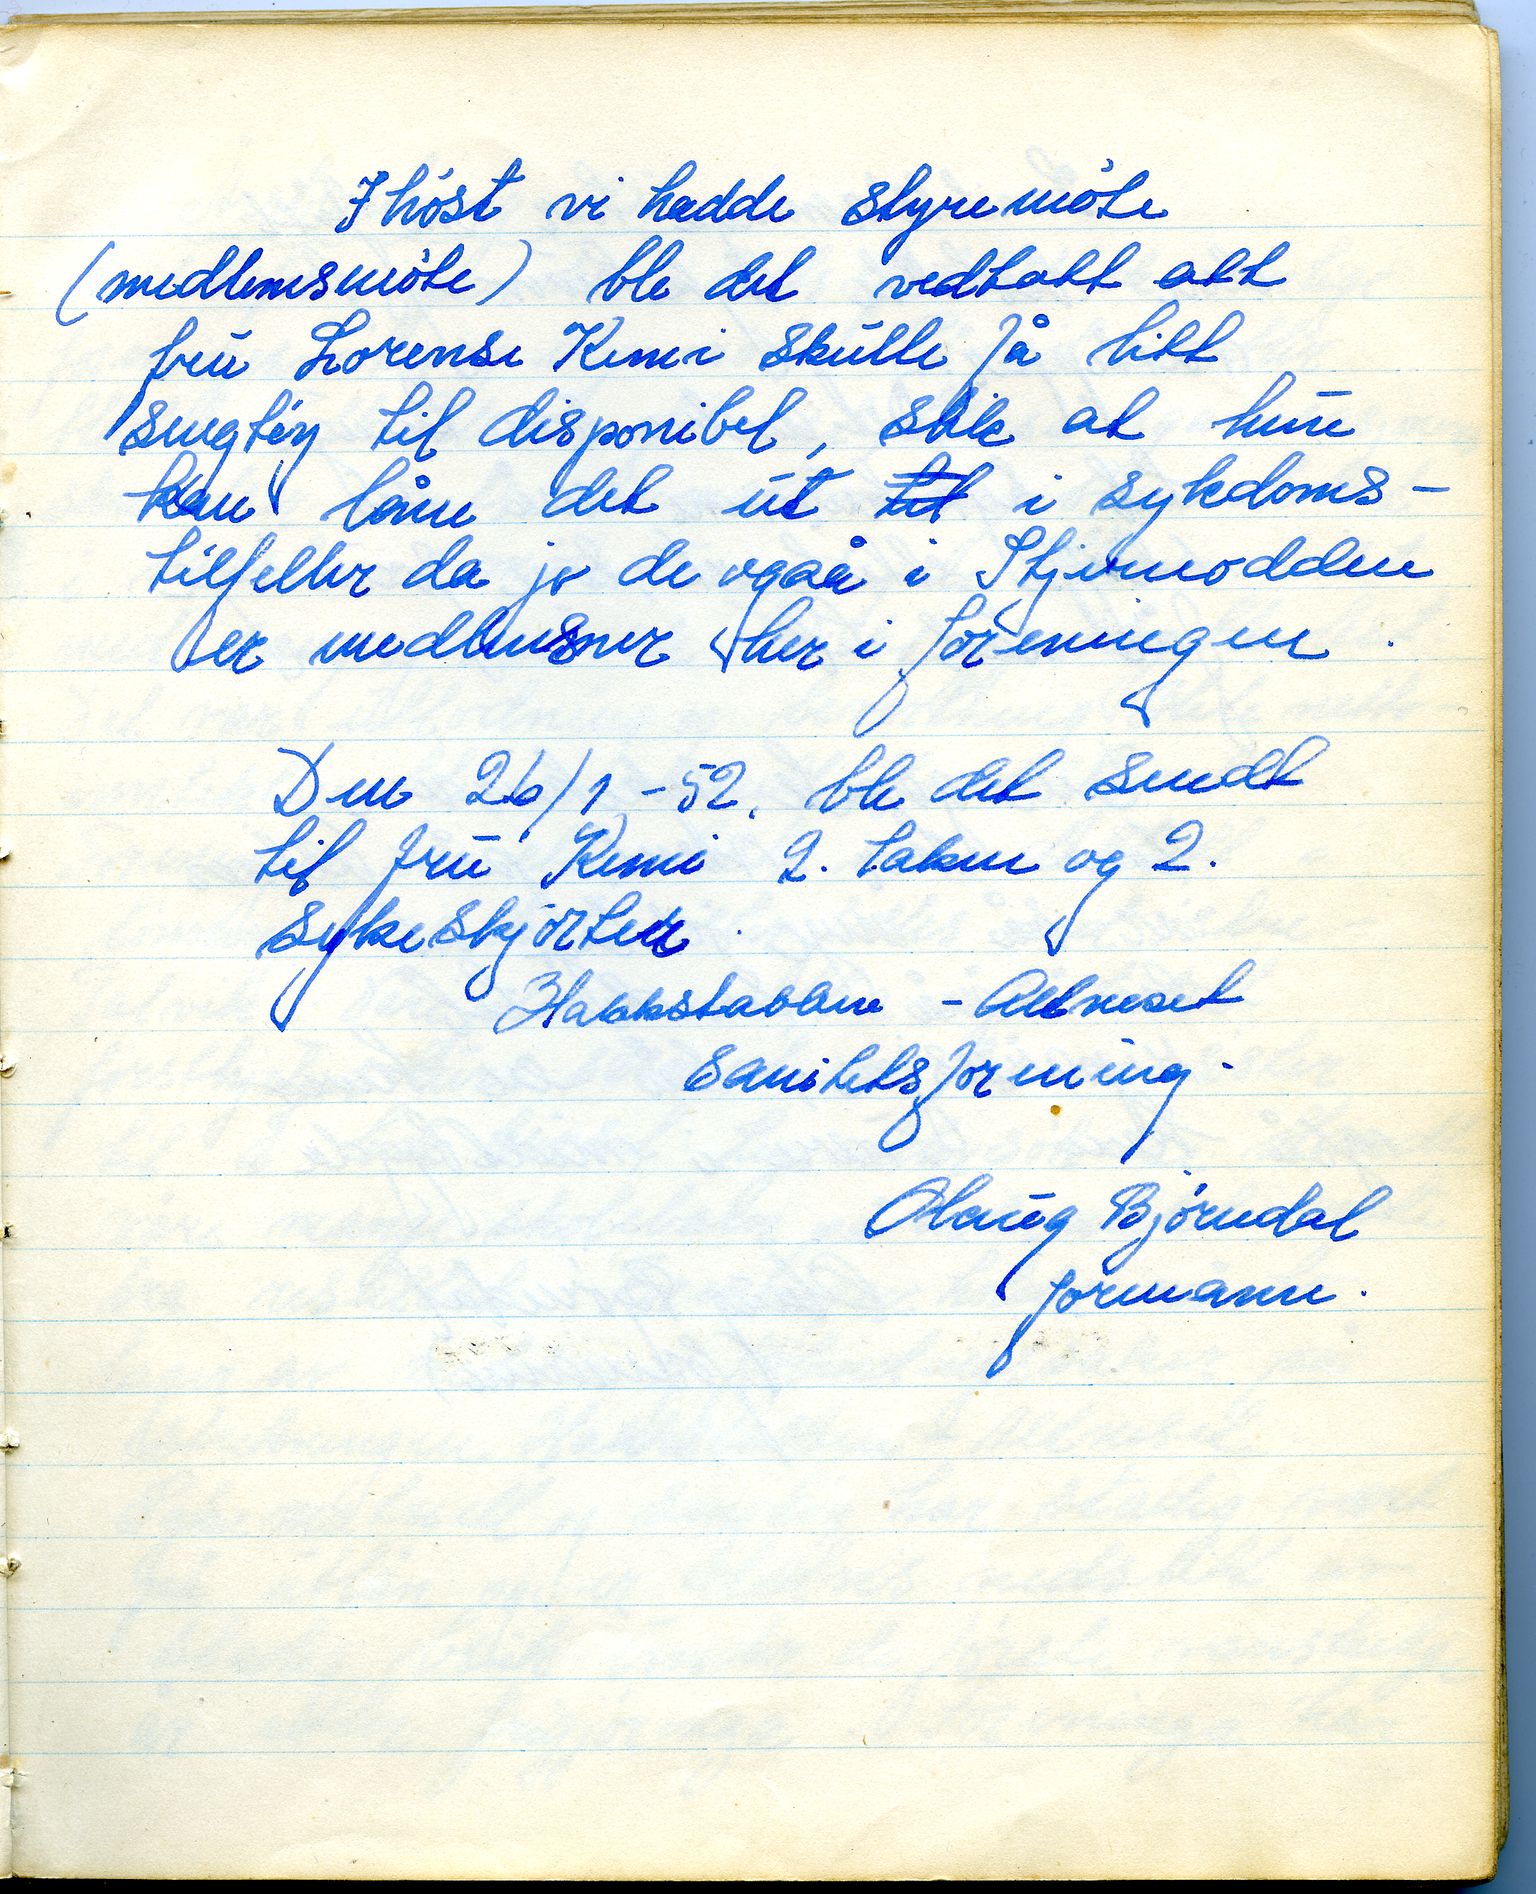 I høst vi hadde styremøte
(medlemsmøte) ble det vedtatt att
fru Lorense Kimi skulle få litt
sengtøy til disponibel, slik at hun
kan låne det ut til i sykdoms-
tilfeller da jo de også i Stjernodden
er medlemsner her i foreningen.
Den 26/1-52. ble det sendt
til fru Kimi 2. laken og 2.
sykeskjorter.
Hakkstabben - Altneset
Sanitetsforening.
Olaug Bjørndal
formann.